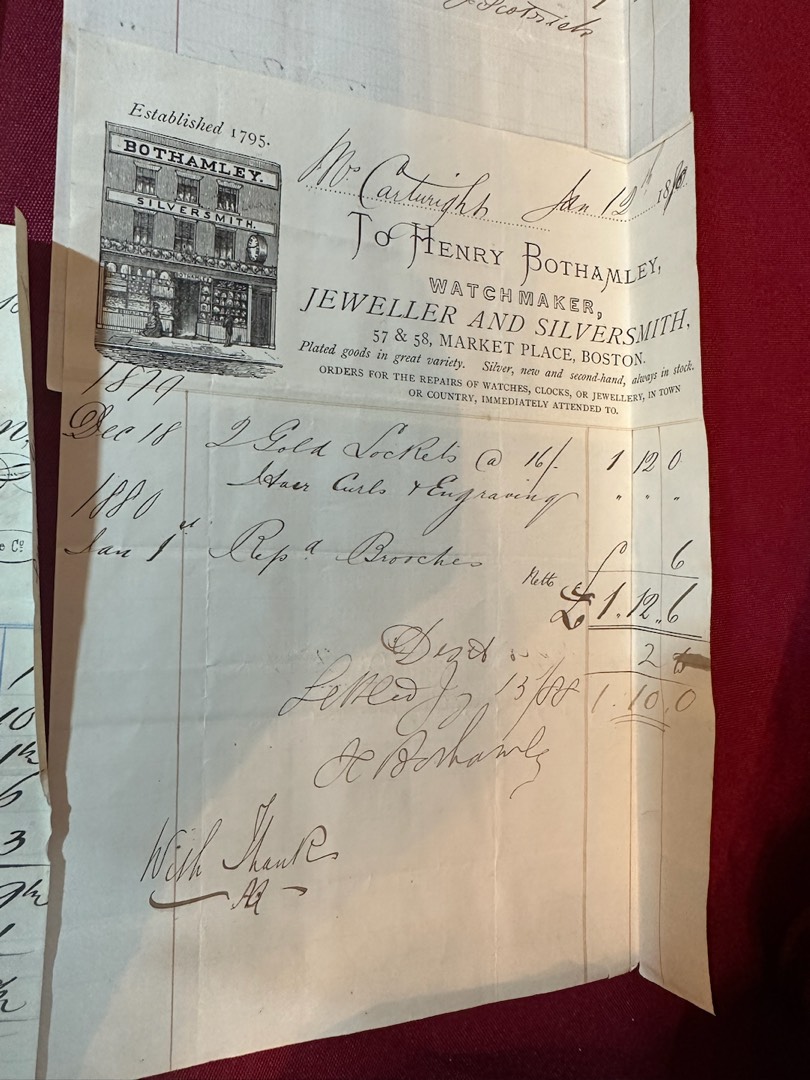 Established 1795.
BOTHAMLEY.
SILVERSMITH.
BOTHAMLEY
Mrs Cartwright Jan 12th 1880
To Henry Bothamley,
WATCHMAKER,
JEWELLER AND SILVERSMITH,
57 & 58, MARKET PLACE, BOSTON.
Plated goods in great variety. Silver, new and second-hand, always in stock.
ORDERS FOR THE REPAIRS OF WATCHES, CLOCKS, OR JEWELLERY, IN TOWN
OR COUNTRY, IMMEDIATELY ATTENDED TO.
1879
Dec 18 2 Gold Lockets @ 16/- 1 12 0
Hair Curls & Engraving " " "
1880
Jan 1st Repd Brooches 6
Netto £ 1.12.6
2
Settled 1.10.0
H Bothamley
With Thanks
e Co
10
6
3